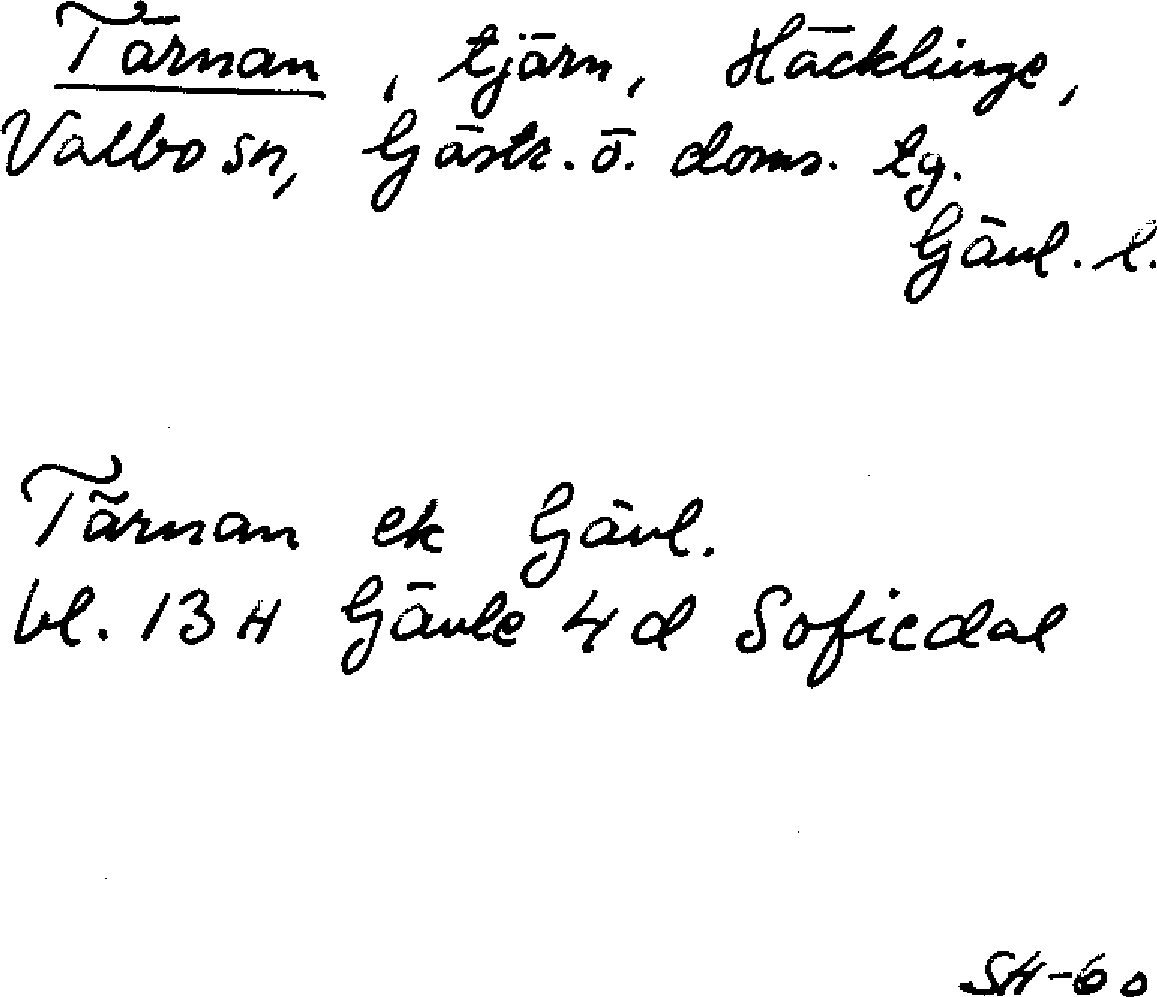 Tärnan, tjärn, Häcklinge,
Valbo sn, Gästr. ö. doms. tg.
Gävl. l.
Tärnan ek Gävl.
bl. 13 H Gävle 4 d Sofiedal
SH-60